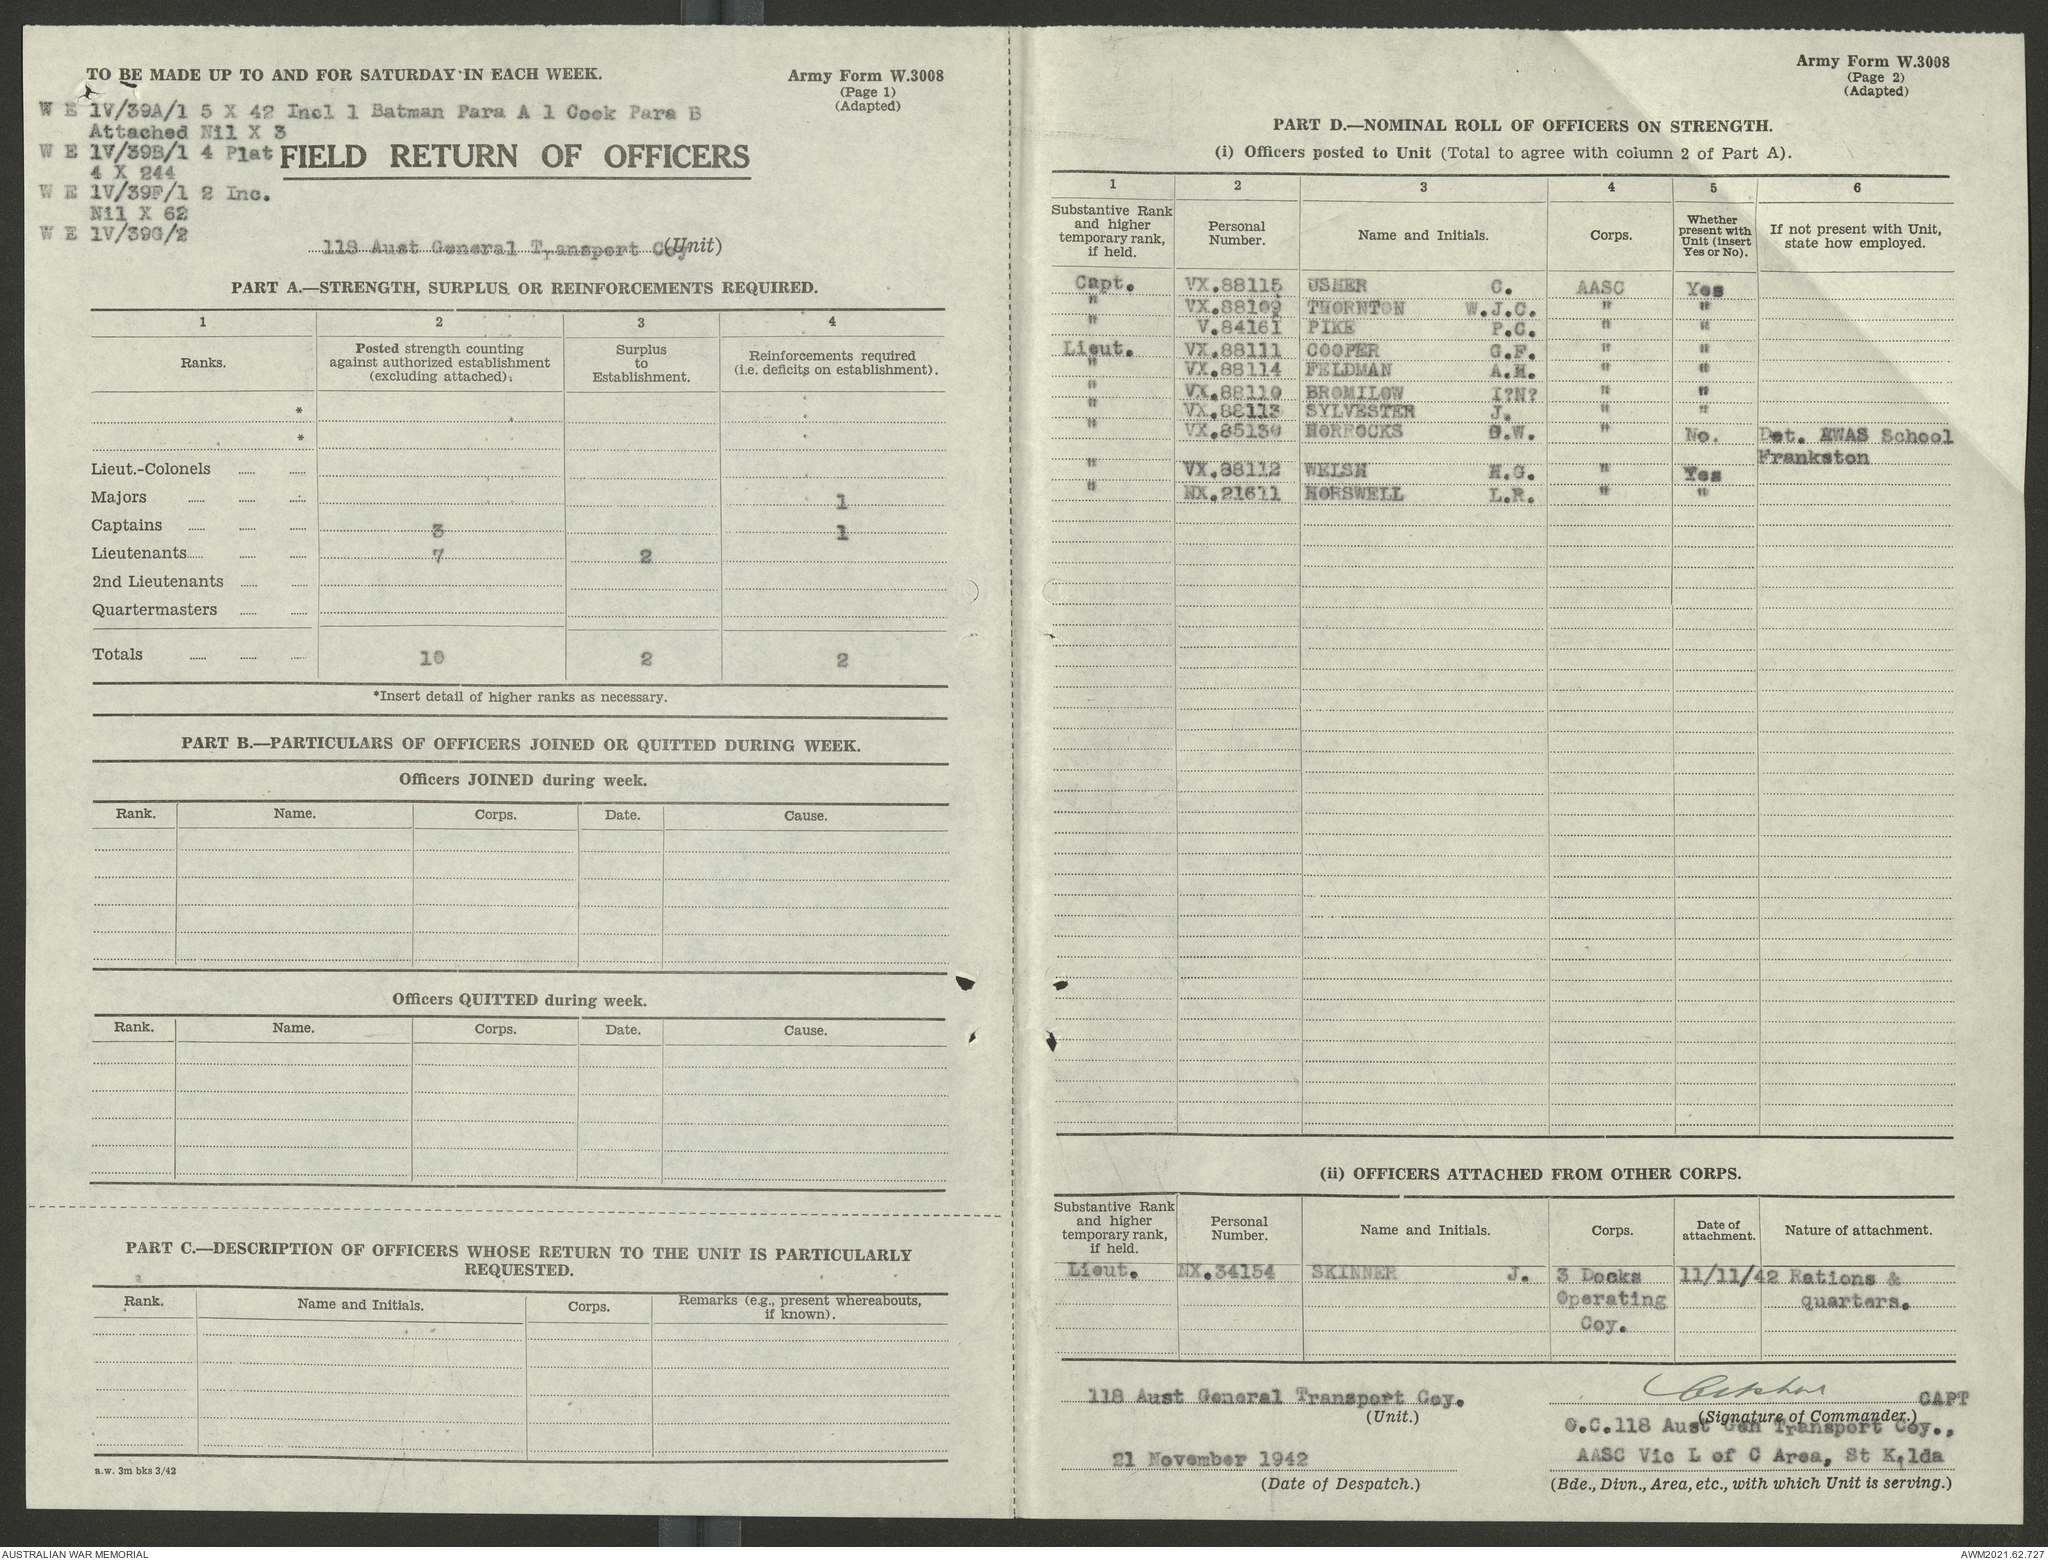 TO BE MADE UP TO AND FOR SATURDAY IN EACH WEEK.
Army Form W.3008
(Page 1)
(Adapted)
W E 1V/39A/1 5 X 42 Incl 1 Batman Para A 1 Cook Para B
Attached Nil X 3
W E 1V/39B/1 4 Plat
4 X 244
W E 1V/39F/1 2 Inc.
Nil X 62
W E 1V/39G/2
FIELD RETURN OF OFFICERS
118 Aust General Transport Coy (Unit)
PART A.—STRENGTH, SURPLUS OR REINFORCEMENTS REQUIRED.
1 2 3 4
Ranks. Posted strength counting against authorized establishment (excluding attached). Surplus to Establishment. Reinforcements required (i.e. deficits on establishment).
*
*
Lieut.-Colonels
Majors 1
Captains 3 1
Lieutenants 7 2
2nd Lieutenants
Quartermasters
Totals 10 2 2
*Insert detail of higher ranks as necessary.
PART B.—PARTICULARS OF OFFICERS JOINED OR QUITTED DURING WEEK.
Officers JOINED during week.
Rank. Name. Corps. Date. Cause.
Officers QUITTED during week.
Rank. Name. Corps. Date. Cause.
PART C.—DESCRIPTION OF OFFICERS WHOSE RETURN TO THE UNIT IS PARTICULARLY
REQUESTED.
Rank. Name and Initials. Corps. Remarks (e.g., present whereabouts, if known).
a.w. 3m bks 3/42
Army Form W.3008
(Page 2)
(Adapted)
PART D.—NOMINAL ROLL OF OFFICERS ON STRENGTH.
(i) Officers posted to Unit (Total to agree with column 2 of Part A).
1 2 3 4 5 6
Substantive Rank and higher temporary rank, if held. Personal Number. Name and Initials. Corps. Whether present with Unit (insert Yes or No). If not present with Unit, state how employed.
Capt. VX.88115 USHER C. AASC Yes
" VX.88109 THORNTON W.J.C. " "
" V.84161 PIKE P.C. " "
Lieut. VX.88111 COOPER G.F. " "
" VX.88114 FELDMAN A.M. " "
" VX.88110 BROMILOW I?N? " "
" VX.88113 SYLVESTER J. " "
" VX.85130 HORROCKS G.W. " No. Det. AWAS School
Frankston
" VX.88112 WELSH H.G. Yes
" NX.21611 HORSWELL L.R. " "
(ii) OFFICERS ATTACHED FROM OTHER CORPS.
Substantive Rank and higher temporary rank, if held. Personal Number. Name and Initials. Corps. Date of attachment. Nature of attachment.
Lieut. NX.34154 SKINNER J. 3 Docks 11/11/42 Rations &
Operating quarters.
Coy.
118 Aust General Transport Coy. CAPT
(Unit.) (Signature of Commander.)
O.C.118 Aust Gen Transport Coy.,
21 November 1942 AASC Vic L of C Area, St Kilda
(Date of Despatch.) (Bde., Divn., Area, etc., with which Unit is serving.)
AUSTRALIAN WAR MEMORIAL AWM2021.62.727